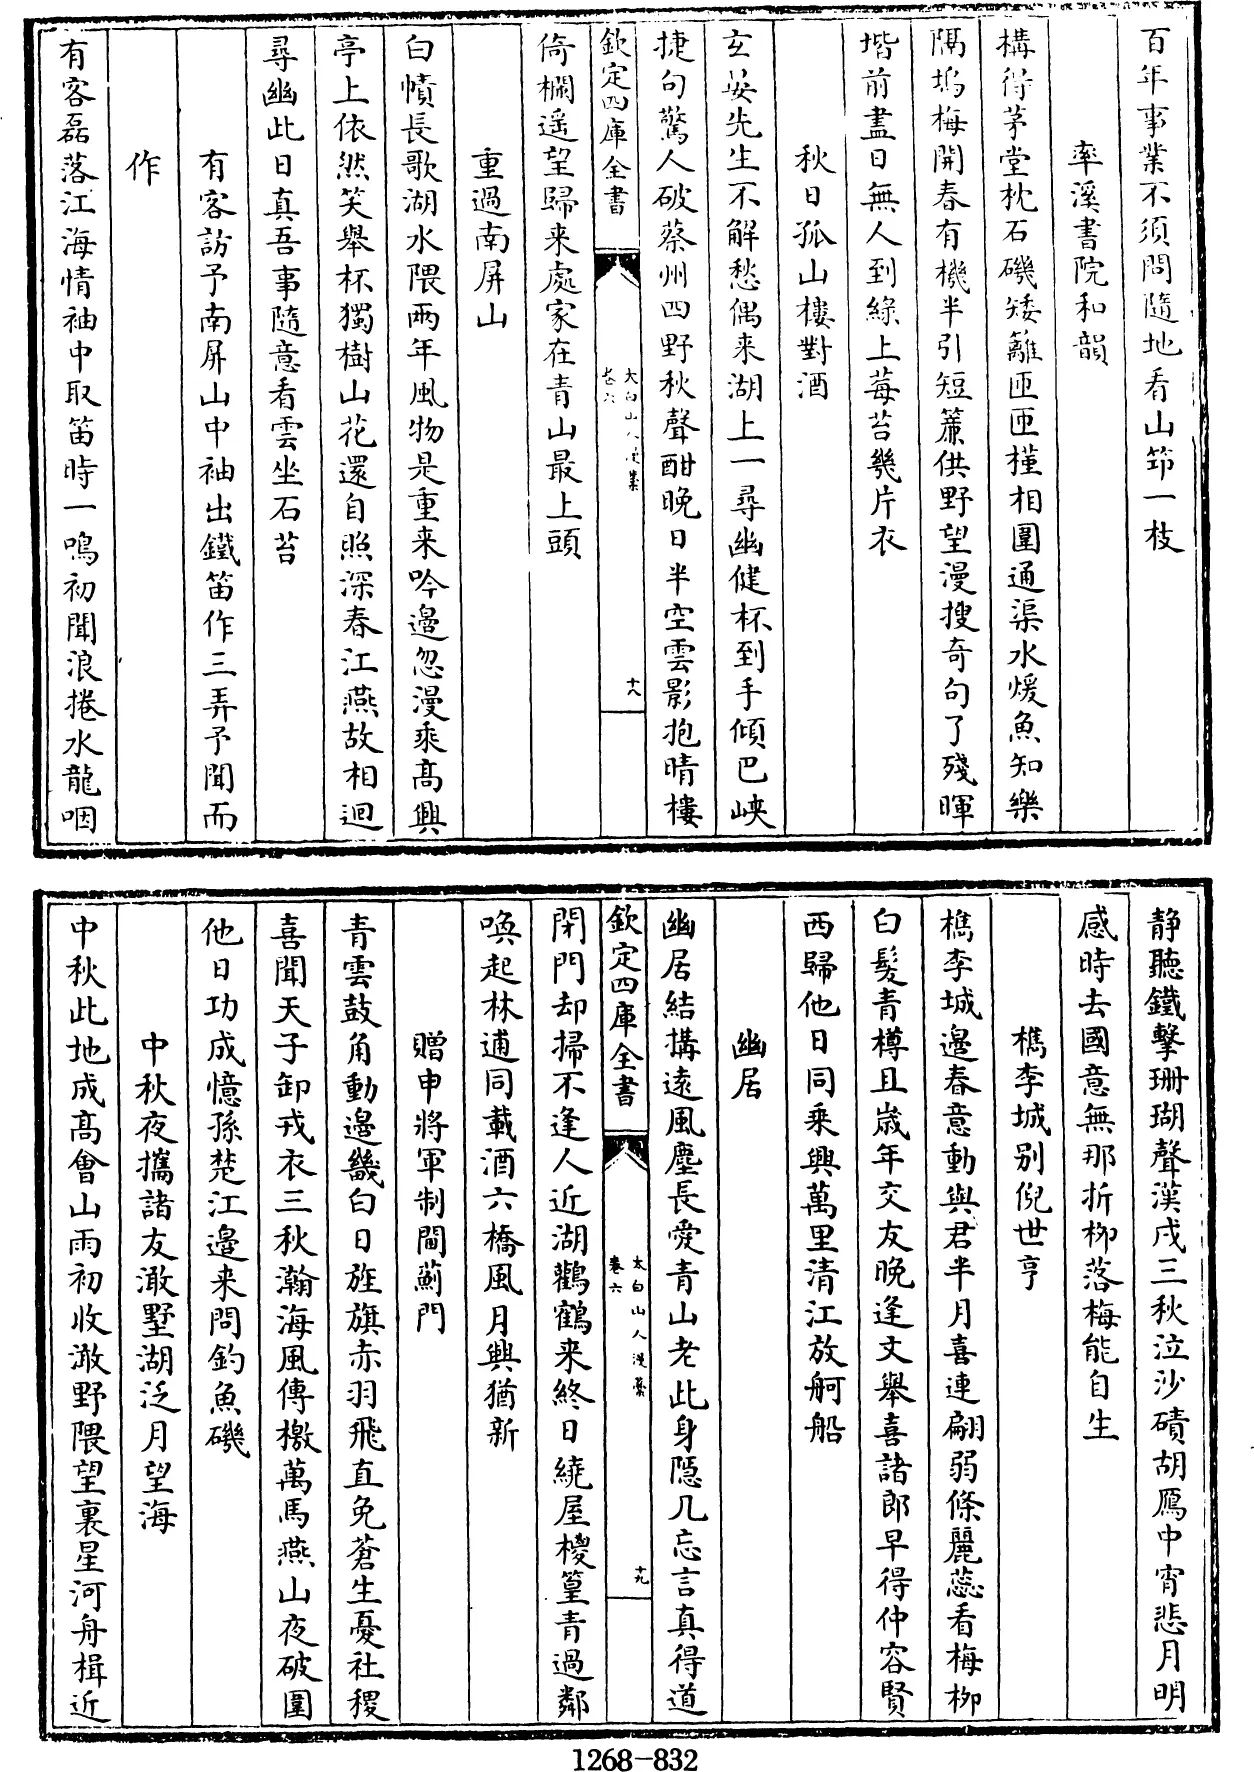 百年事業不須問隨地看山筇一枝
率溪書院和韻
構得茅堂枕石磯矮籬匝匝槿相圍通渠水煖魚知樂
隔塢梅開春有機半引短簾供野望漫搜奇句了殘暉
堦前盡日無人到綠上莓苔幾片衣
秋日孤山樓對酒
玄晏先生不解愁偶来湖上一尋幽健杯到手傾巴峽
捷句驚人破蔡州四野秋聲酣晚日半空雲影抱晴樓
欽定四庫全書
太白山人漫藁
卷六
十八
倚欄遥望歸来處家在青山最上頭
重過南屏山
白幘長歌湖水隈兩年風物是重来吟邉忽漫乘髙興
亭上依然笑舉杯獨樹山花還自照深春江燕故相迴
尋幽此日真吾事隨意看雲坐石苔
有客訪予南屏山中袖出鐵笛作三弄予聞而
作
有客磊落江海情袖中取笛時一鳴初聞浪捲水龍咽
靜聽鐵擊珊瑚聲漢戍三秋泣沙磧胡鴈中宵悲月明
感時去國意無那折栁落梅能自生
檇李城别倪世亨
檇李城邉春意動與君半月喜連翩弱條麗蕊看梅栁
白髮青樽且歲年交友晚逢文舉喜諸郎早得仲容賢
西歸他日同乘興萬里清江放舸船
幽居
幽居結搆遠風塵長愛青山老此身隠几忘言真得道
欽定四庫全書
太白山人漫藁
卷六
十九
閉門却掃不逢人近湖鸛鶴来終日繞屋椶篁青過鄰
喚起林逋同載酒六橋風月興猶新
贈申將軍制閫薊門
青雲鼓角動邉畿白日旌旗赤羽飛直免蒼生憂社稷
喜聞天子卸戎衣三秋瀚海風傳檄萬馬燕山夜破圍
他日功成憶孫楚江邉来問釣魚磯
中秋夜攜諸友澉墅湖泛月望海
中秋此地成髙會山雨初收澉野隈望裏星河舟楫近
1268-832